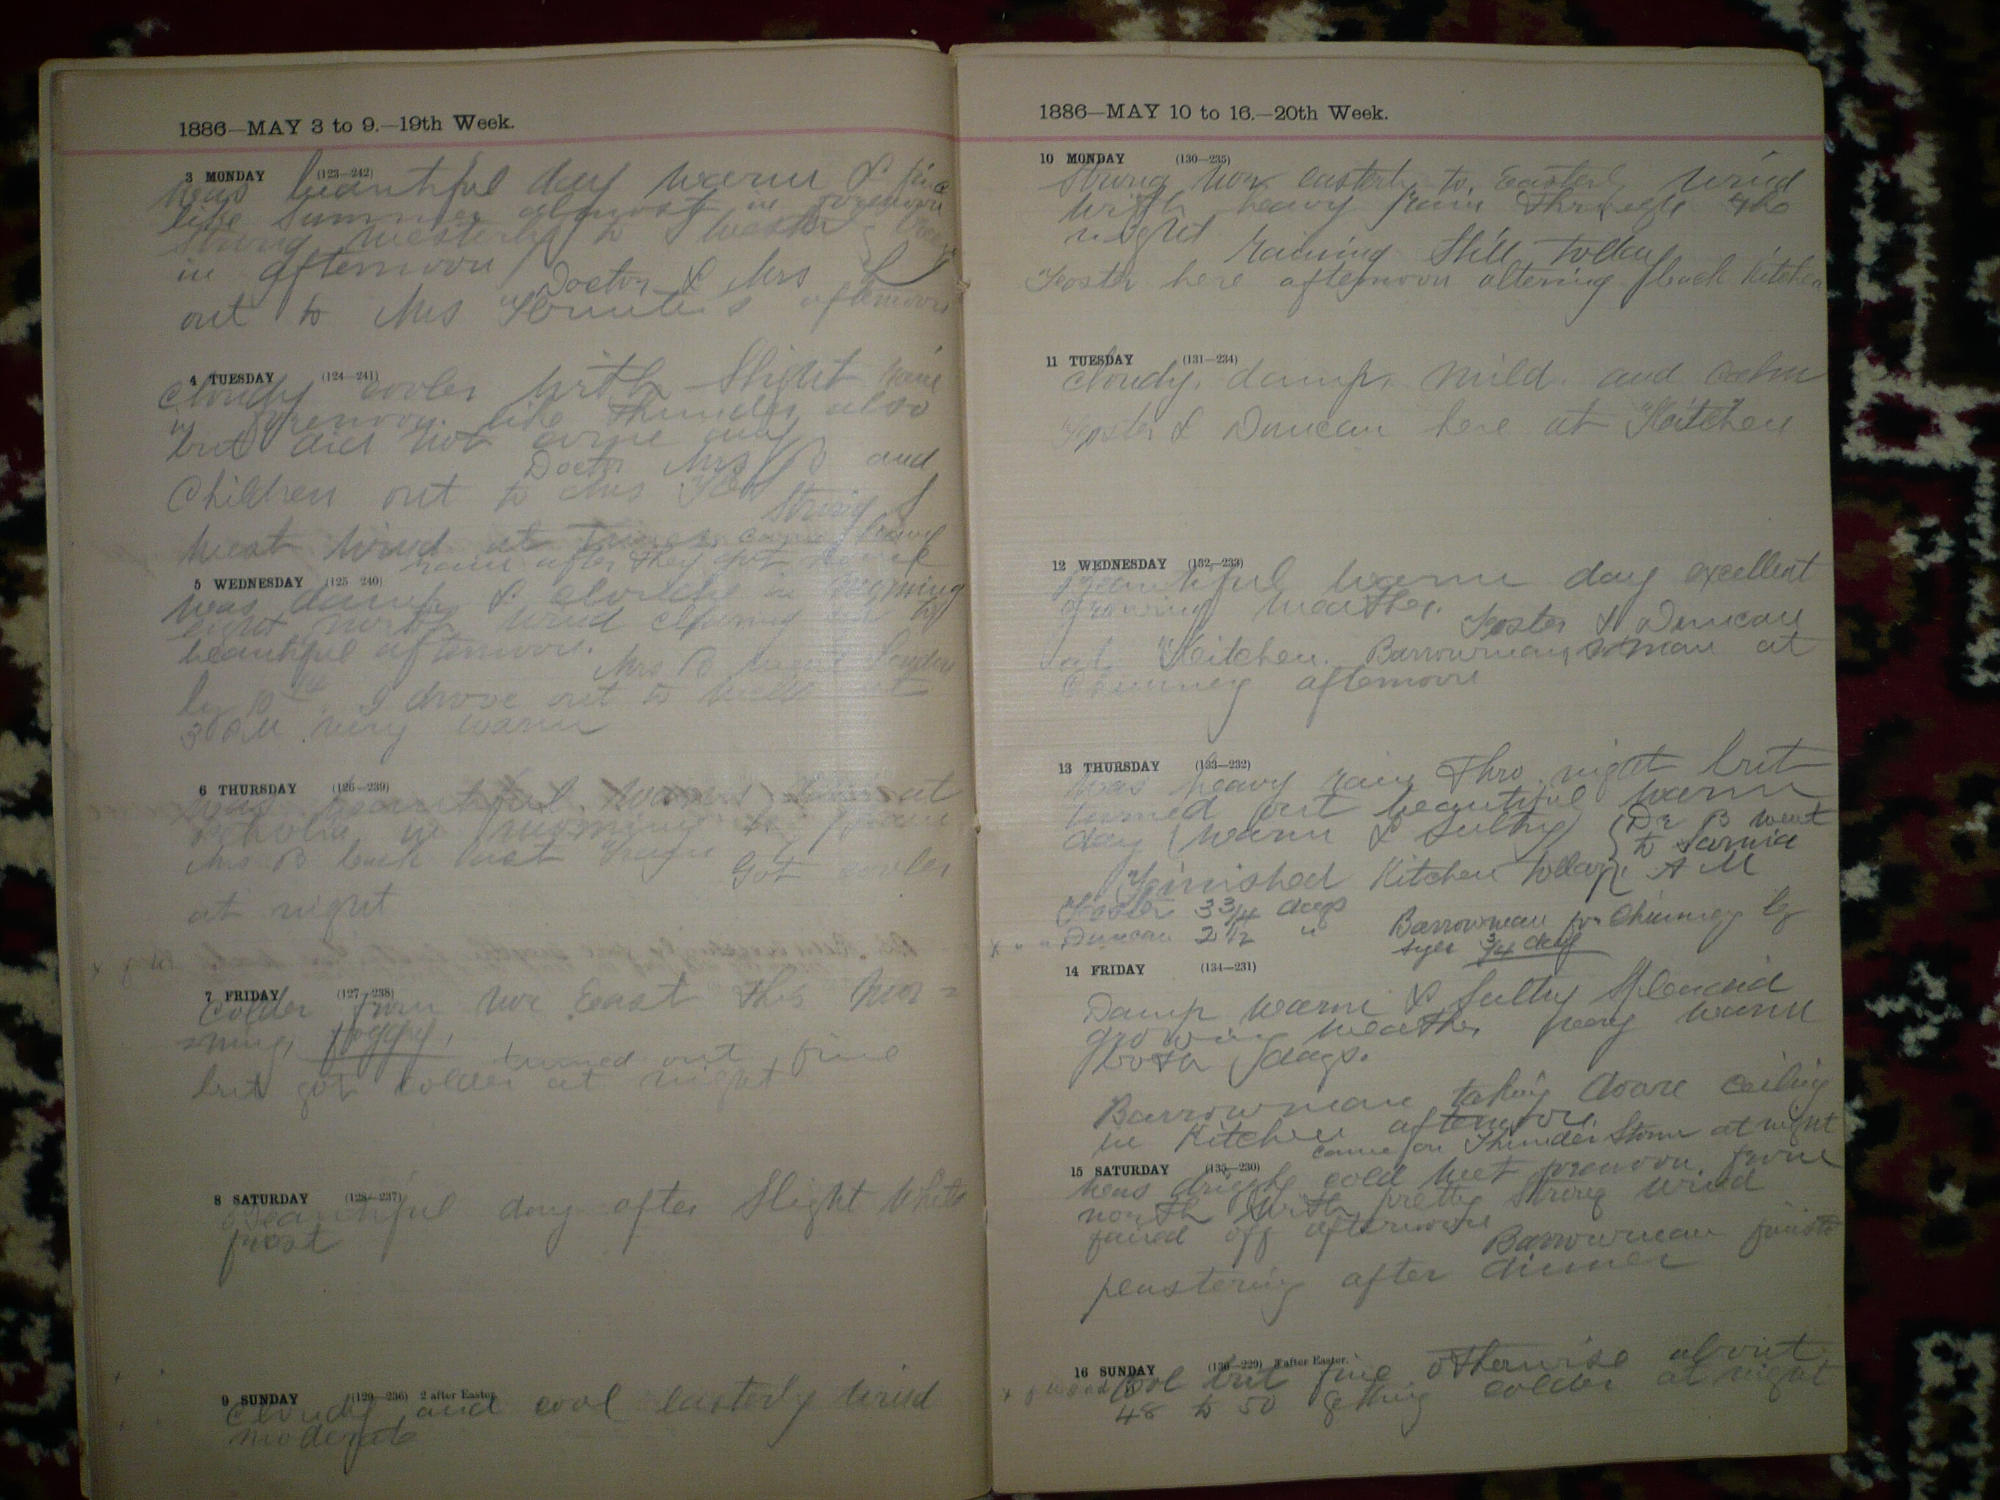 1886—MAY 3 to 9.—19th Week.
3 MONDAY (123—242)
was beautiful day warm & fine
like Summer almost in forenoon
Strong westerly to S wester
in afternoon Doctor & Mrs
out to Mrs afternoon
4 TUESDAY (124—241)
Cloudy cooler with Slight rain
in forenoon. like Thunder also
but did not come any
Doctr Mrs B and
Children out to Mrs
Strong S
West wind at Times. came heavy
rain after they got home
5 WEDNESDAY (125—240)
was damp & cloudy in morning
light north wind clearing
beautiful afternoon.
Mrs B went London
by 10 I drove out to
3 P.M. very warm
6 THURSDAY (126—239)
was beautiful warm at
in morning
Mrs B back last Train
Got cooler
at night
7 FRIDAY (127—238)
Colder from Nor East this mor=
=ning, foggy,
turned out fine
but got colder at night
8 SATURDAY (128—237)
Beautiful day after Slight White
frost
9 SUNDAY (129—236) 2 after Easter.
Cloudy and cool easterly wind
moderate
1886—MAY 10 to 16.—20th Week.
10 MONDAY (130—235)
Strong Nor easterly to Easterly wind
with heavy rain Through the
night
raining Still Today
Foster here afternoon altering back Kitchen
11 TUESDAY (131—234)
Cloudy, damp, mild. and calm
Foster & Duncan here at Kitchen
12 WEDNESDAY (132—233)
Beautiful warm day excellent
growing weather.
Foster & Duncan
at Kitchen. Barrowman & man at
Chimney afternoon
13 THURSDAY (133—232)
was heavy rain Thro night but
turned out beautiful warm
day (warm & Sultry) Dr B went
to Sarnia
Finished Kitchen today A M
Foster 3 3/4 days
Barrowman for Chimney
Duncan 2 1/2 "
3/4 day
14 FRIDAY (134—231)
Damp warm & Sultry Splendid
growing weather very warm
both days.
Barrowman taking down ceiling
in Kitchen afternoon
came on Thunder Storm at night
15 SATURDAY (135—230)
was drizzly cold wet forenoon from
north with pretty Strong wind
faired off afternoon
Barrowman finished
plastering after dinner
16 SUNDAY (136—229) 3 after Easter.
Cool but fine otherwise about
48 to 50 getting colder at night